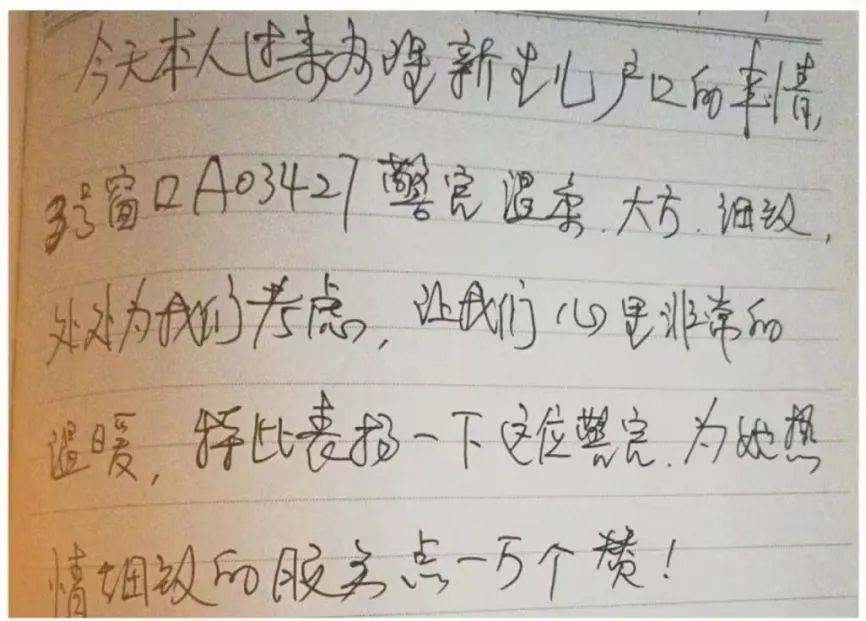 今天本人过来办理新生儿户口的事情,
3号窗口A03427警官温柔.大方.细致,
处处为我们考虑,让我们心里非常的
温暖,特此表扬一下这位警官.为她热
情细致的服务点一万个赞!